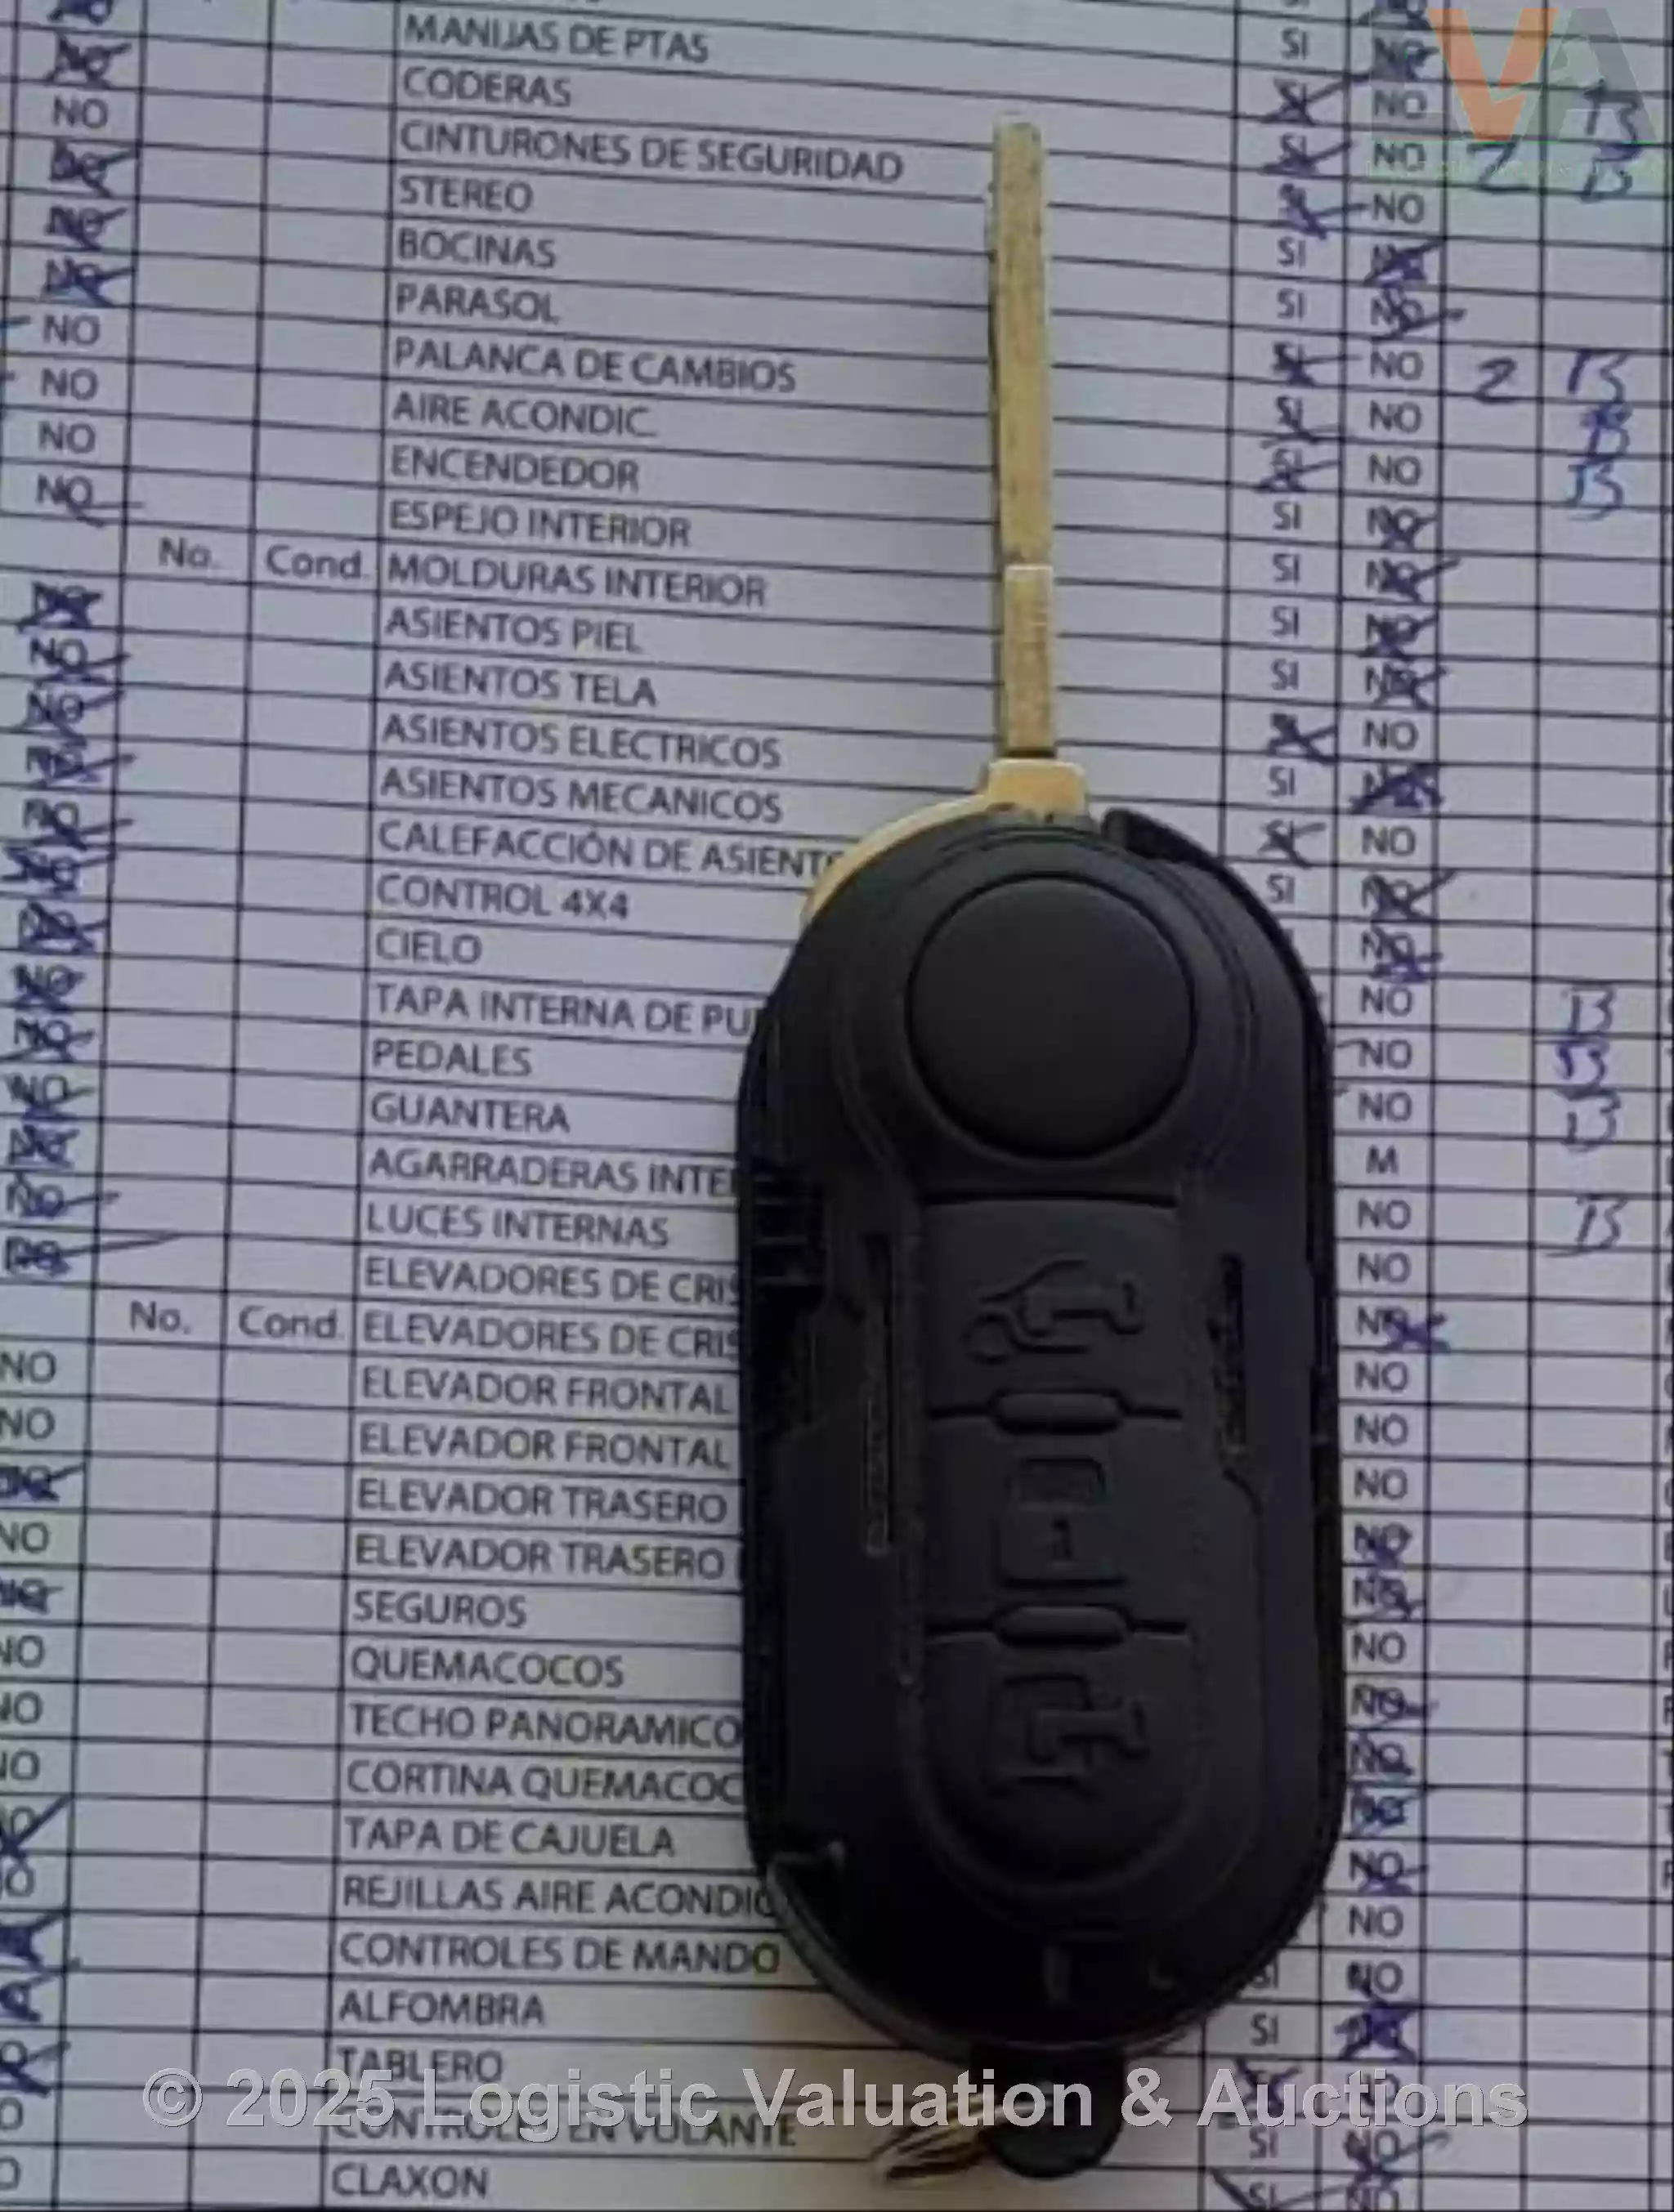 MANIJAS DE PTAS SI NO
CODERAS SI NO B
NO CINTURONES DE SEGURIDAD SI NO 2 B
STEREO SI NO
BOCINAS SI NO
PARASOL SI NO
NO PALANCA DE CAMBIOS SI NO 2 B
NO AIRE ACONDIC. SI NO B
NO ENCENDEDOR SI NO B
NO ESPEJO INTERIOR SI NO
No. Cond. MOLDURAS INTERIOR SI NO
NO ASIENTOS PIEL SI NO
NO ASIENTOS TELA SI NO
NO ASIENTOS ELECTRICOS SI NO
NO ASIENTOS MECANICOS SI NO
NO CALEFACCIÓN DE ASIENTO SI NO
NO CONTROL 4X4 SI NO
NO CIELO NO
NO TAPA INTERNA DE PU NO B
NO PEDALES NO B
NO GUANTERA NO B
NO AGARRADERAS INTE M
NO LUCES INTERNAS NO B
NO ELEVADORES DE CRIS NO
No. Cond. ELEVADORES DE CRIS NO
NO ELEVADOR FRONTAL NO
NO ELEVADOR FRONTAL NO
NO ELEVADOR TRASERO NO
NO ELEVADOR TRASERO NO
NO SEGUROS NO
NO QUEMACOCOS NO
NO TECHO PANORAMICO NO
NO CORTINA QUEMACOC NO
TAPA DE CAJUELA NO
REJILLAS AIRE ACONDIC NO
CONTROLES DE MANDO NO
ALFOMBRA SI NO
TABLERO
© 2025 Logistic Valuation & Auctions
CONTROLES EN VOLANTE SI NO
CLAXON SI NO